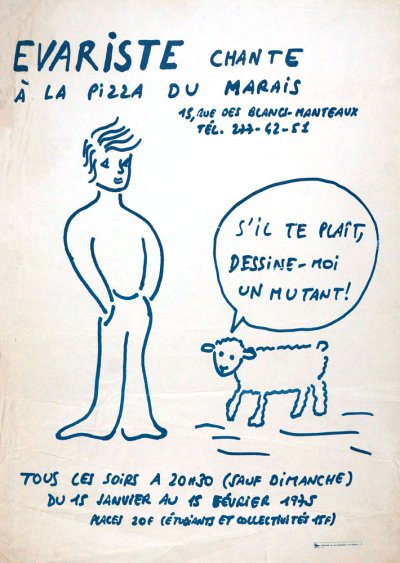 EVARISTE CHANTE
À LA PIZZA DU MARAIS
15, RUE DES BLANCS-MANTEAUX
TÉL. 277-42-51
S'IL TE PLAÎT,
DESSINE-MOI
UN MUTANT!
TOUS LES SOIRS A 20H30 (SAUF DIMANCHE)
DU 15 JANVIER AU 15 FÉVRIER 1975
PLACES 20F (ÉTUDIANTS ET COLLECTIVITÉS 15F)